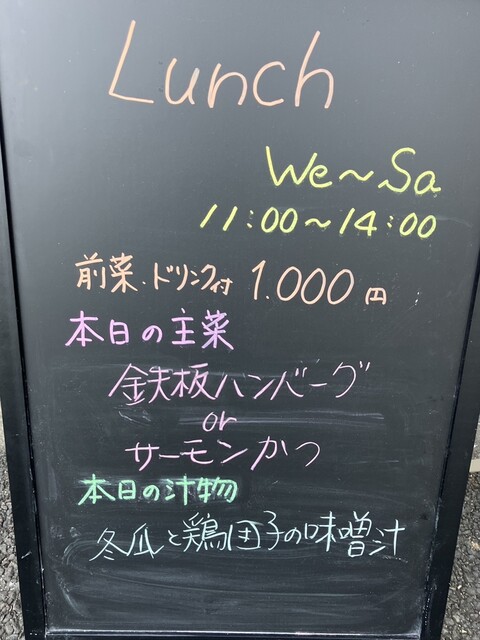 Lunch
We～Sa
11:00～14:00
前菜・ドリンク付 1.000円
本日の主菜
鉄板ハンバーグ
or
サーモンかつ
本日の汁物
冬瓜と鶏団子の味噌汁